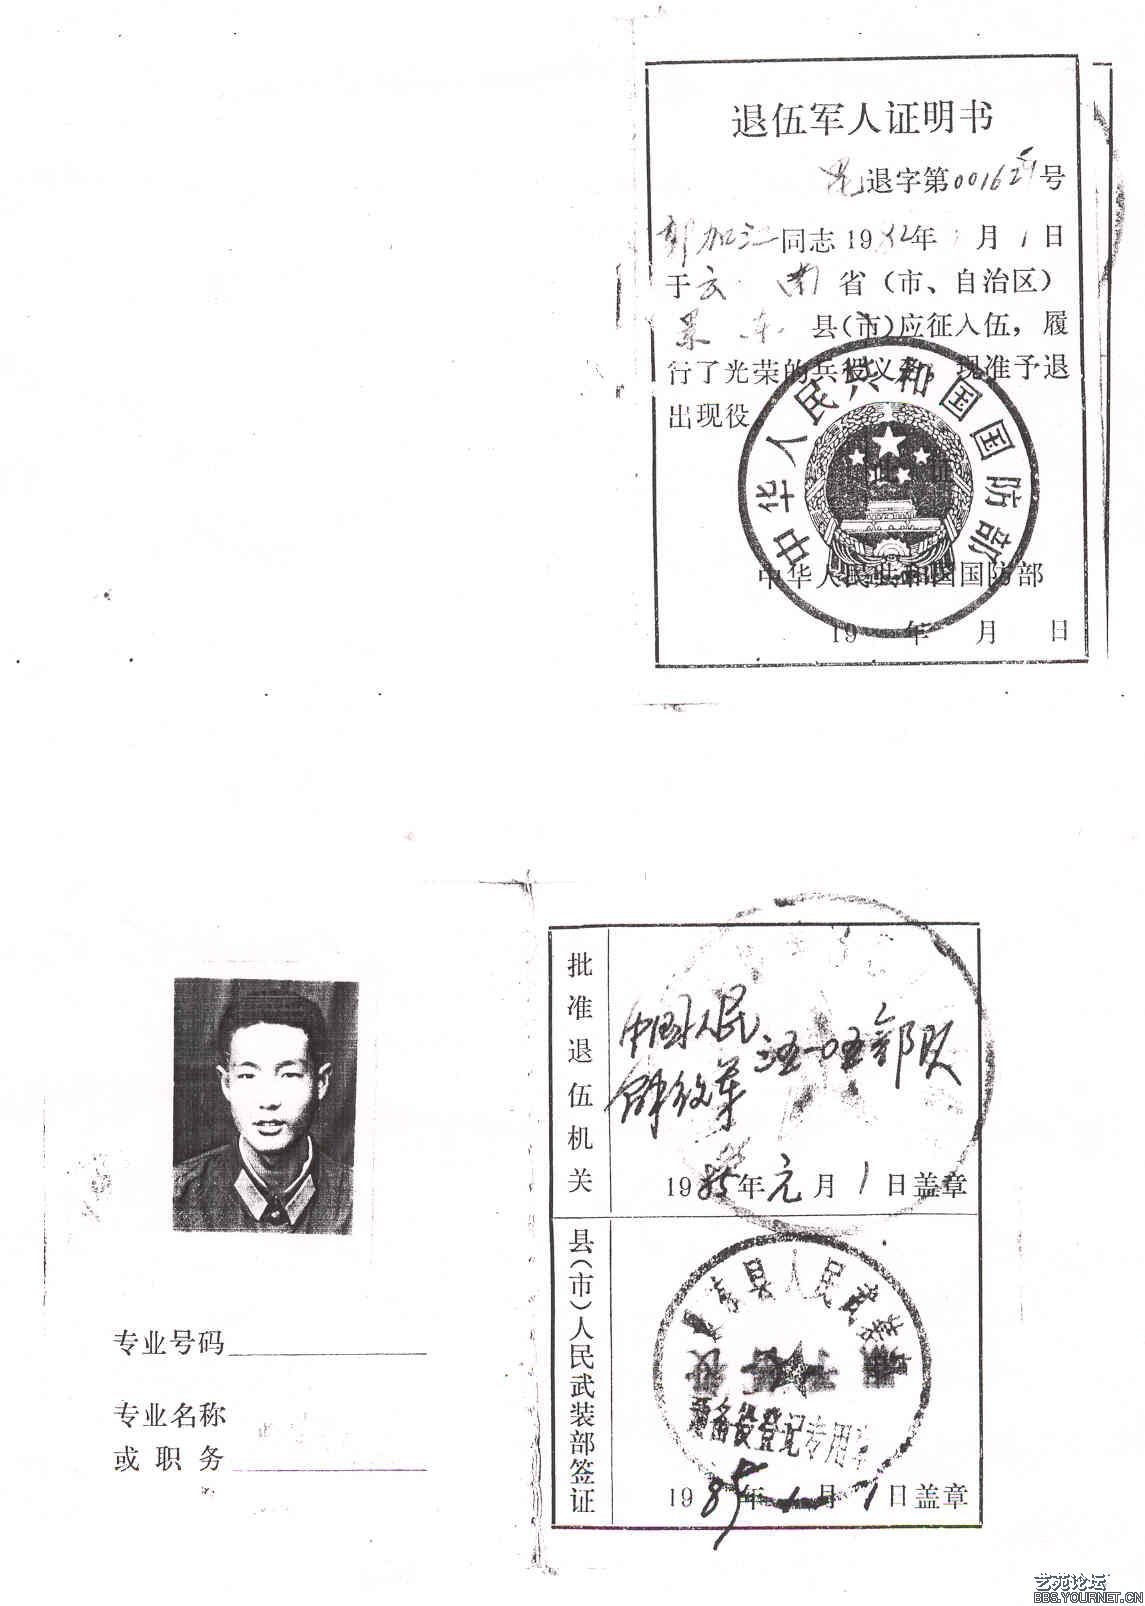 退伍军人证明书
昆退字第00162号
加江同志1982年1月1日
于云南省（市、自治区）
景东县(市)应征入伍，履
行了光荣的兵役义务，现准予退
出现役
此证
中华人民共和国国防部
中华人民共和国国防部
19 年 月 日
批准退伍机关
中国人民
解放军
三五一〇五部队
1985年元月1日盖章
县(市)人民武装部签证
景东县人民武装部
预备役登记专用章
1985年1月1日盖章
专业号码
专业名称
或职务
艺苑论坛
BBS.YOURNET.CN